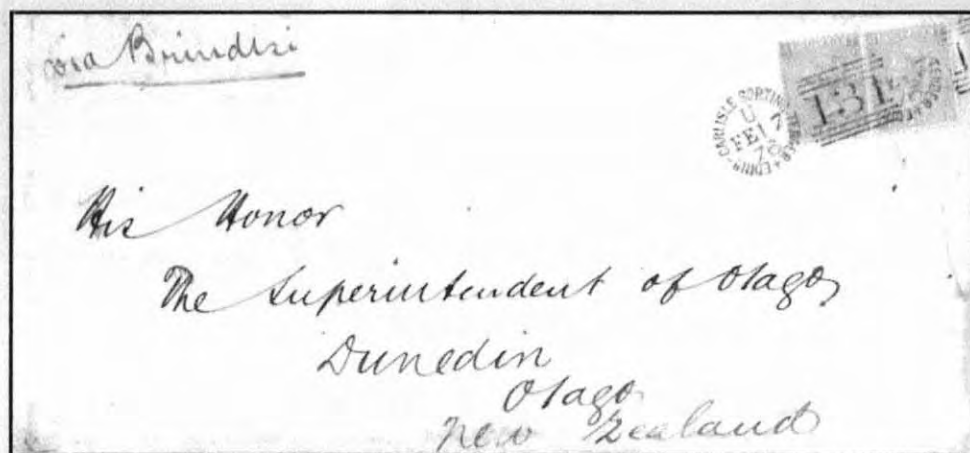 via Brindisi
131
EDINR- CARLISLE SORTING TENDER
U
FE 17
His Honor
The Superintendent of Otago
Dunedin
Otago
New Zealand